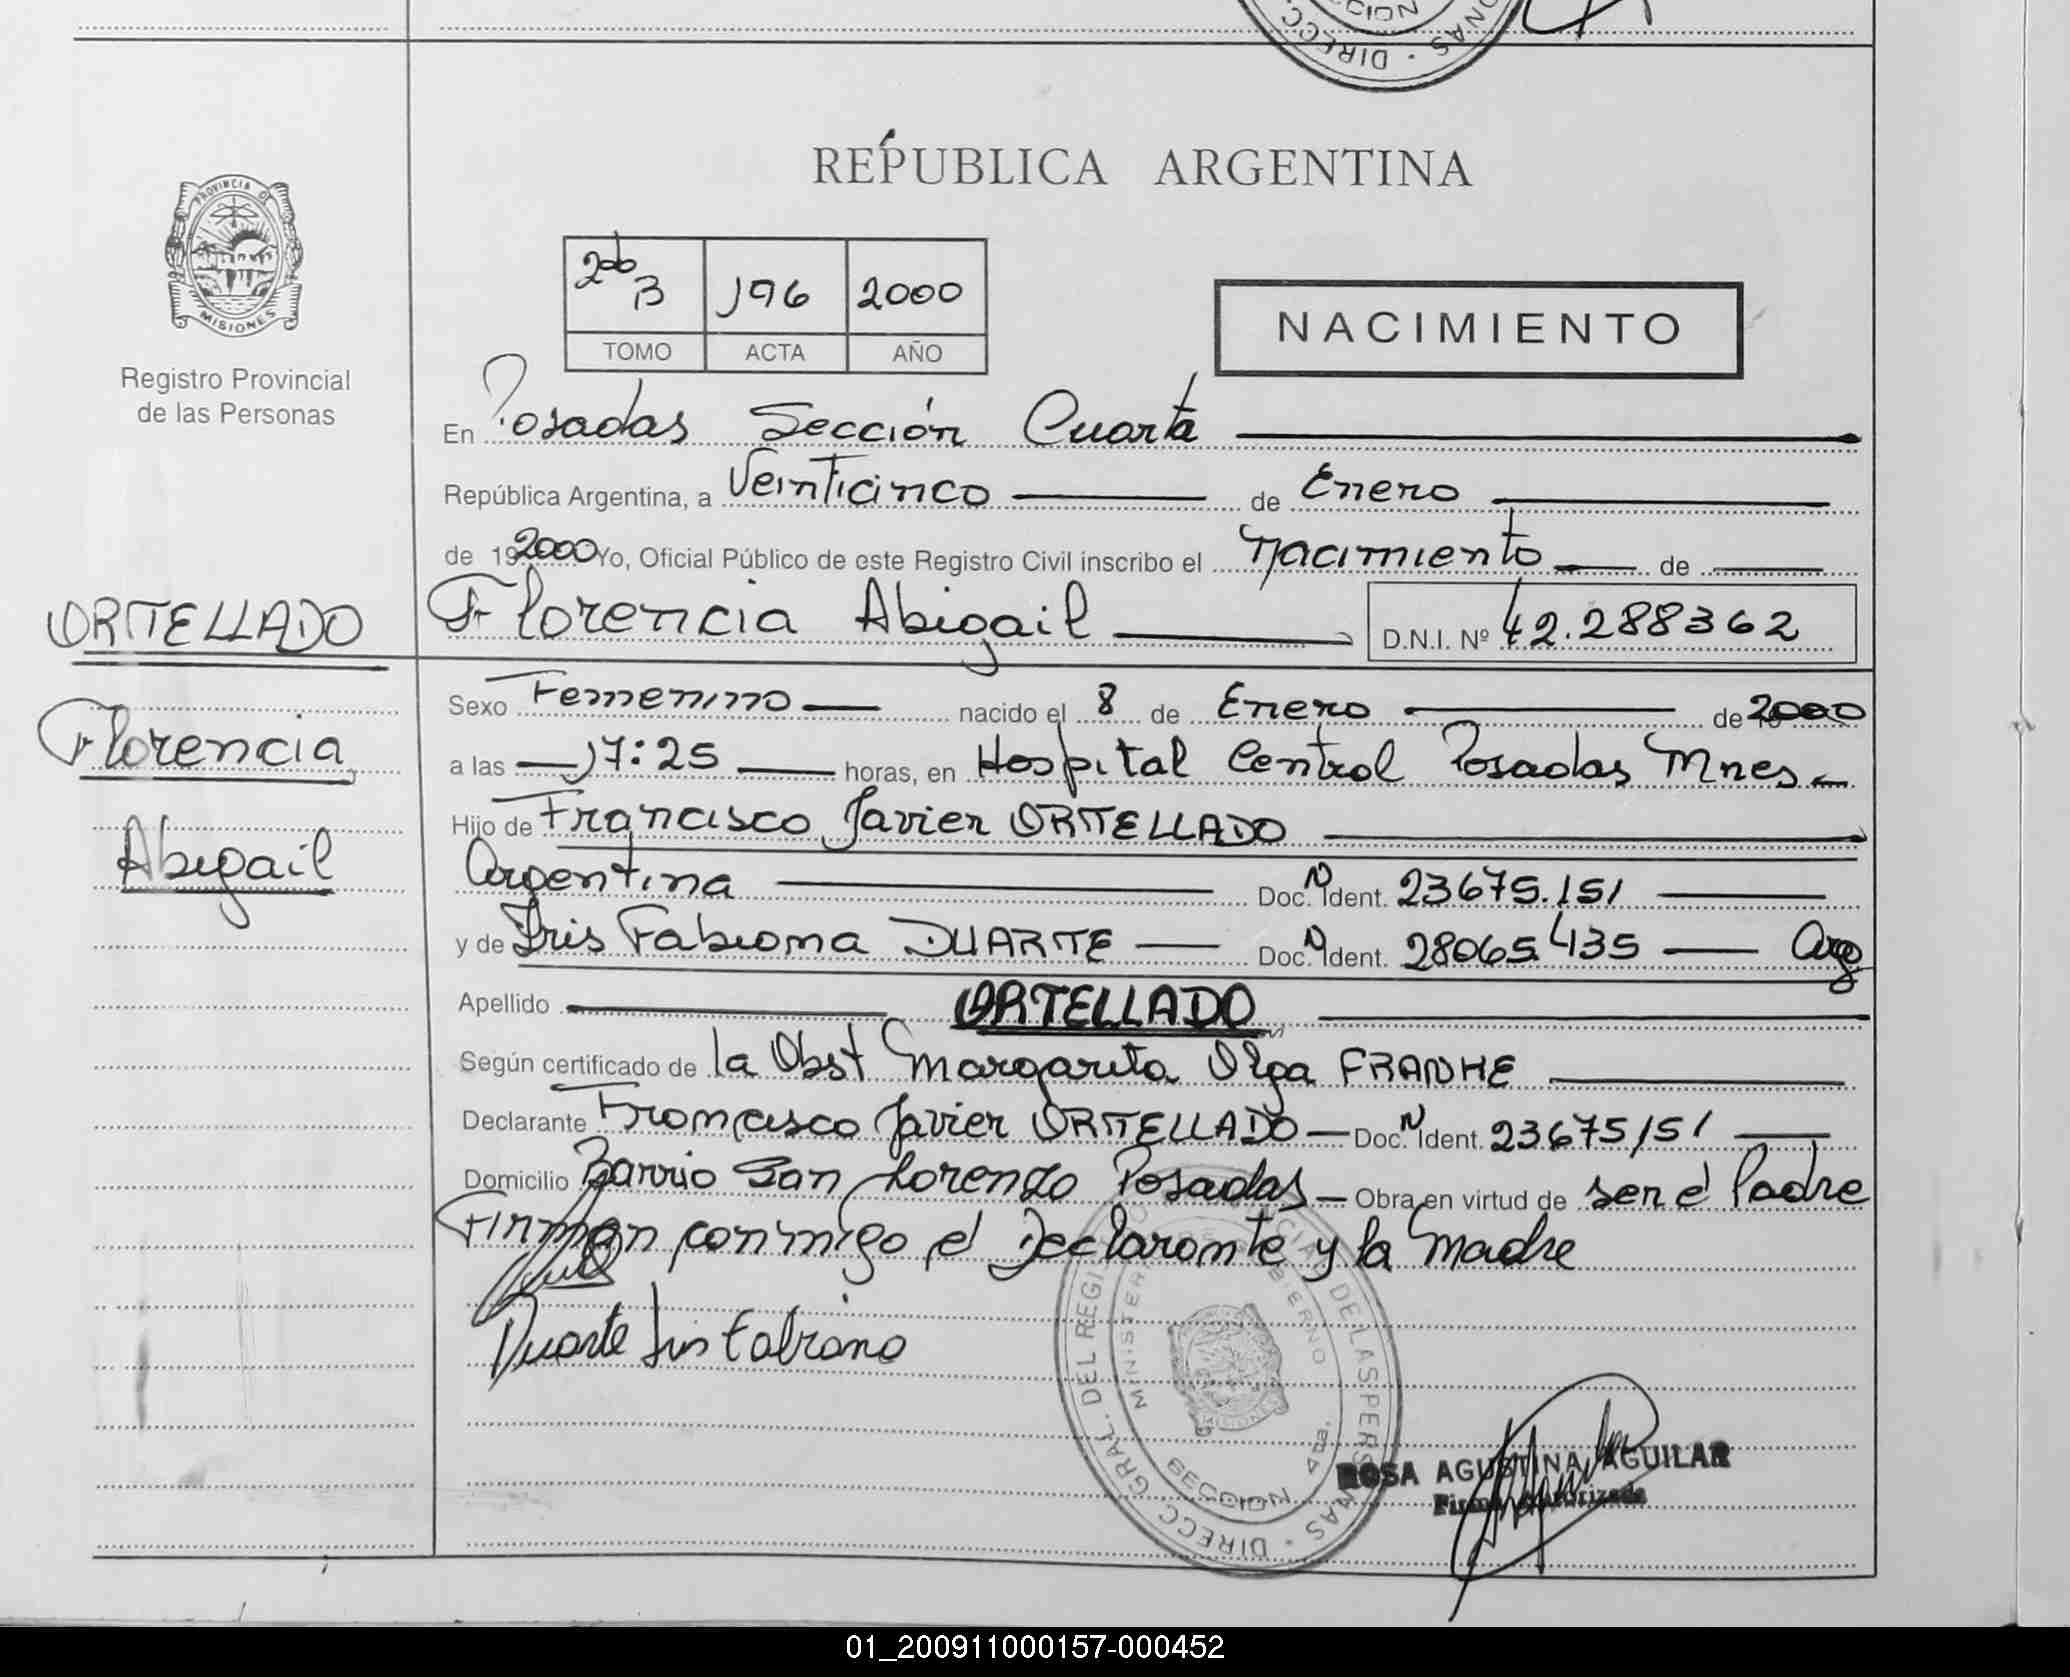 CCION
DIRECC.
NAS
REPUBLICA ARGENTINA
PROVINCIA DE
MISIONES
Registro Provincial
de las Personas
2do B 196 2000
TOMO ACTA AÑO
NACIMIENTO
En Posadas Sección Cuarta
República Argentina, a Veinticinco de Enero
de 19 2000 Yo, Oficial Público de este Registro Civil inscribo el Nacimiento de
ORTELLADO
Florencia
Abigail
Florencia Abigail D.N.I. Nº 42.288362
Sexo Femenino nacido el 8 de Enero de 2000
a las 17:25 horas, en Hospital Central Posadas Mnes
Hijo de Francisco Javier ORTELLADO
Argentina Doc. N Ident. 23675.151
y de Iris Fabiana DUARTE Doc. N Ident. 28065.435 Arg
Apellido ORTELLADO
Según certificado de la Obst Margarita Olga FRANKE
Declarante Francisco Javier ORTELLADO Doc. N Ident. 23675151
Domicilio Barrio San Lorenzo Posadas Obra en virtud de ser el Padre
Firman conmigo el Declarante y la Madre
Duarte Iris Fabiana
DIRECC GRAL. DEL REGISTRO PROVINCIAL DE LAS PERSONAS
MINISTERIO GOBIERNO
MISIONES
SECCION 4ta.
ROSA AGUSTINA AGUILAR
Firma Autorizada
01_200911000157-000452